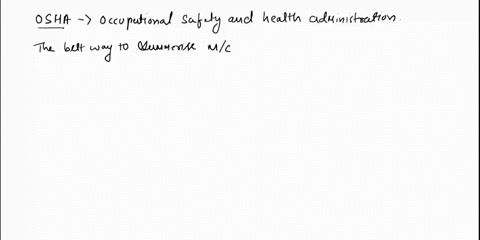 OSHA -> Occupational safety and health administration.
The best way to summarise M/C